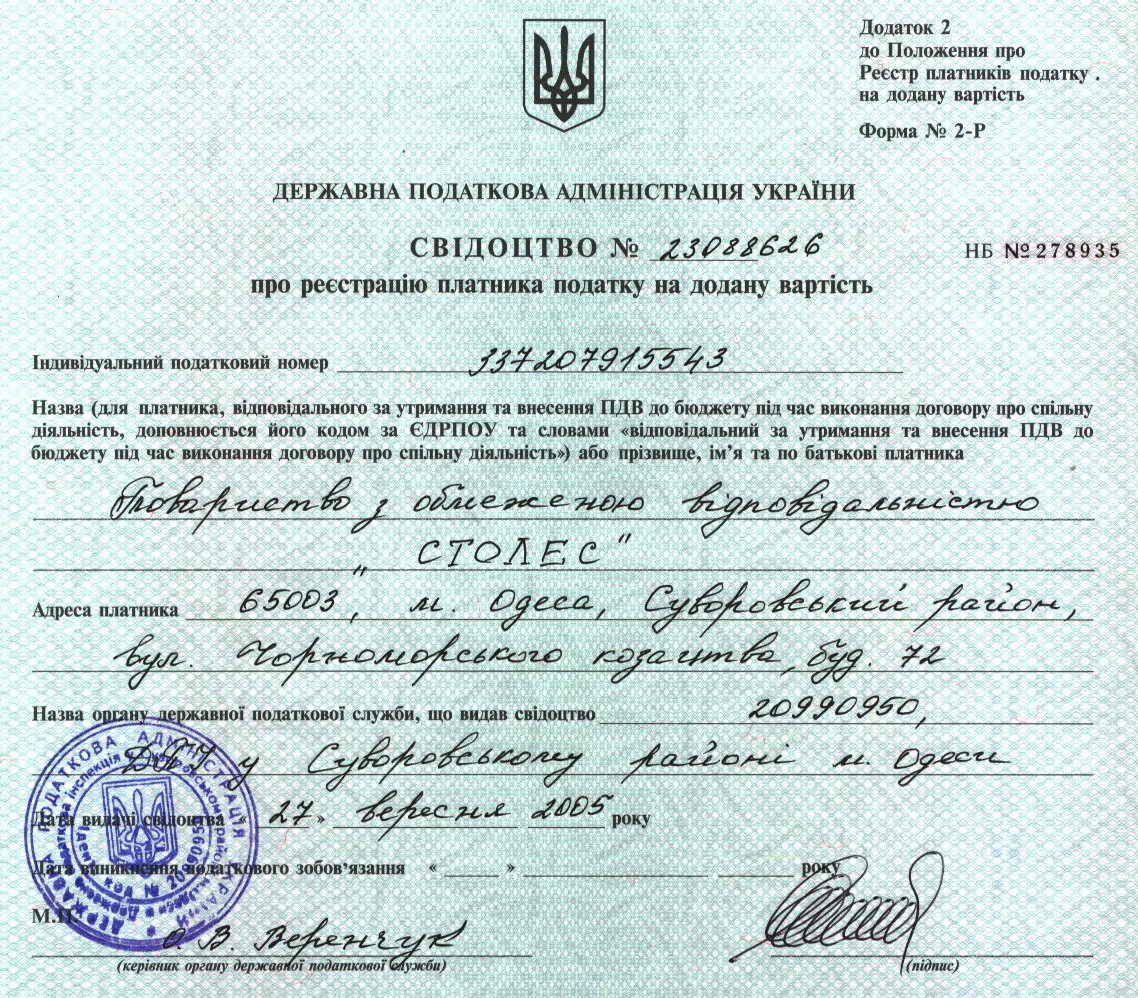 Додаток 2
до Положення про
Реєстр платників податку .
на додану вартість
Форма № 2-Р
ДЕРЖАВНА ПОДАТКОВА АДМІНІСТРАЦІЯ УКРАЇНИ
СВІДОЦТВО № 23088626
НБ №278935
про реєстрацію платника податку на додану вартість
Індивідуальний податковий номер 337207915543
Назва (для платника, відповідального за утримання та внесення ПДВ до бюджету під час виконання договору про спільну
діяльність, доповнюється його кодом за ЄДРПОУ та словами «відповідальний за утримання та внесення ПДВ до
бюджету під час виконання договору про спільну діяльність») або прізвище, ім’я та по батькові платника
Товариство з обмеженою відповідальністю
„ СТОЛЕС"
Адреса платника 65003, м. Одеса, Суворовський район,
вул. Чорноморського козацтва, буд. 72
Назва органу державної податкової служби, що видав свідоцтво 20990950,
ДПІ у Суворовському районі м. Одеси
Дата видачі свідоцтва « 27 » вересня 2005 року
Дата виникнення податкового зобов’язання « » року
М.П.
О. В. Веренчук
(керівник органу державної податкової служби)
(підпис)
ДЕРЖАВНА ПОДАТКОВА АДМІНІСТРАЦІЯ УКРАЇНИ